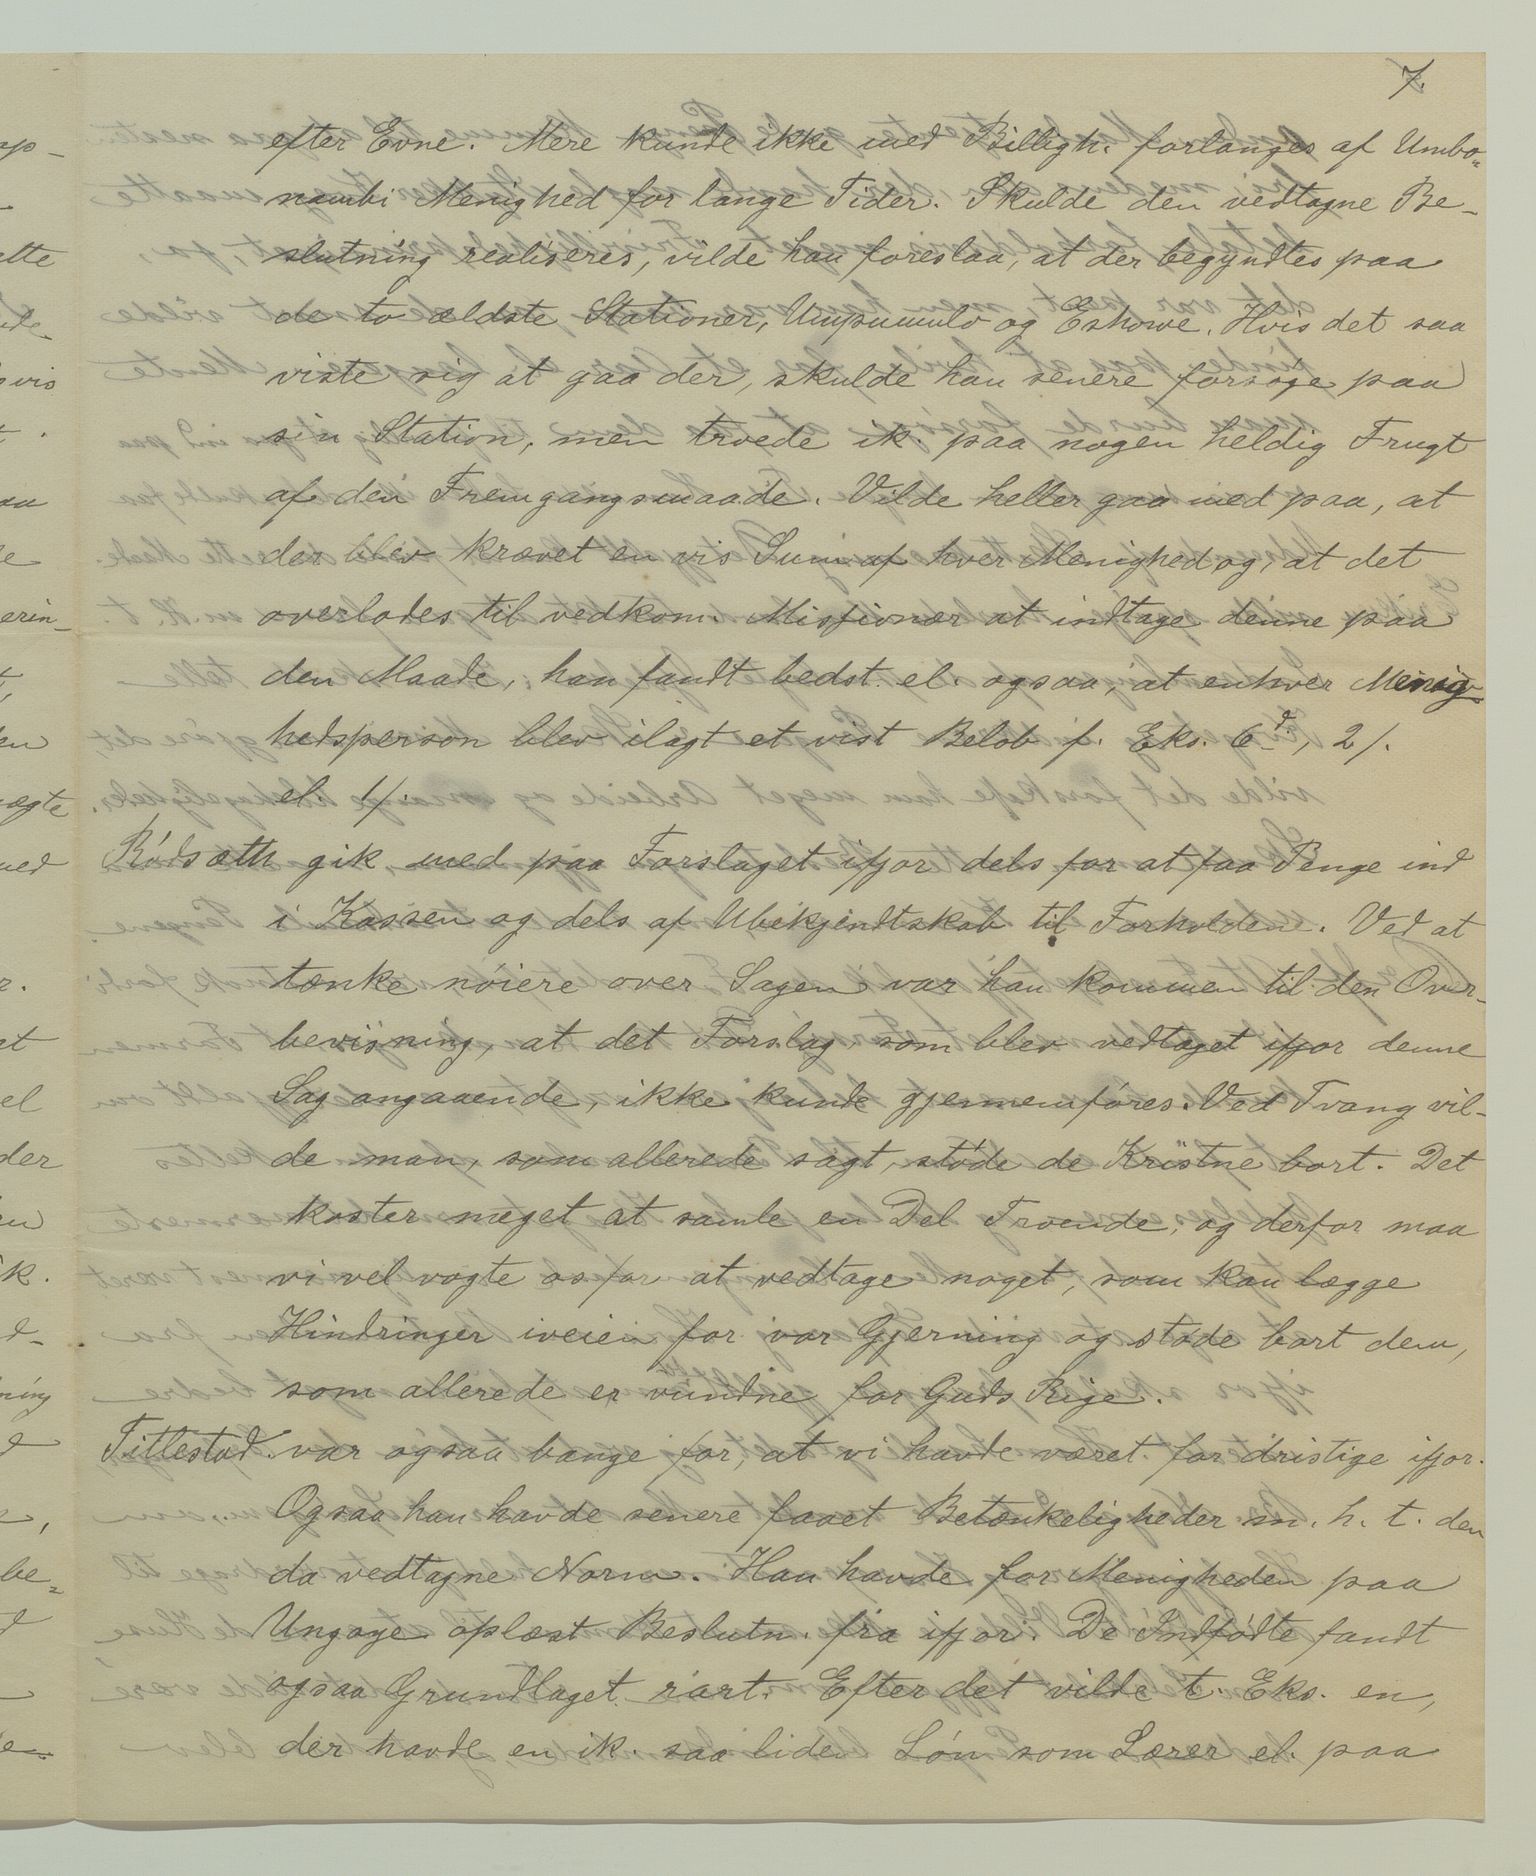 7.
efter Evne. Mere kunde ikke med Billigh. forlanges af Umbo-
nambi Menighed for lange Tider. Skulde den vedtagne Be-
slutning realiseres, vilde han foreslaa, at der begyndtes paa
de to ældste Stationer, Umpumulo og Eshowe. Hvis det saa
viste sig at gaa der, skulde han senere forsøge paa
sin Station, men troede ik. paa nogen heldig Frugt
af den Fremgangsmaade. Vilde heller gaa med paa, at
der blev krævet en vis Sum af hver Menighed og, at det
overlodes til vedkom. Missionær at indtage denne paa
den Maade, han fandt bedst el. ogsaa, at enhver Menig-
hedsperson blev ilagt et vist Beløb f. Eks. 6d, 2/.
el. 1/.
Rödsæth gik med paa Forslaget ifjor dels for at faa Penge ind
i Kassen og dels af Ubekjendtskab til Forholdene. Ved at
tænke nöiere over Sagen var han kommen til den Over-
bevisning, at det Forslag som blev vedtaget ifjor denne
Sag angaaende, ikke kunde gjennemföres. Ved Tvang vil-
de man, som allerede sagt, støde de Kristne bort. Det
koster meget at samle en Del Troende, og derfor maa
vi vel vogte os for at vedtage noget, som kan lægge
Hindringer iveien for vor Gjerning og støde bort dem,
som allerede er vundne for Guds Rige.
Titlestad var ogsaa bange for, at vi havde været for dristige ifjor.
Ogsaa han havde senere faaet Betænkeligheder m. h. t. den
da vedtagne Norm. Han havde for Menigheden paa
Ungoye oplæst Beslutn. fra ifjor. De Indfødte fandt
ogsaa Grundlaget rart. Efter det vilde t. Eks. en,
der havde en ik. saa liden Lön som Lærer el. paa